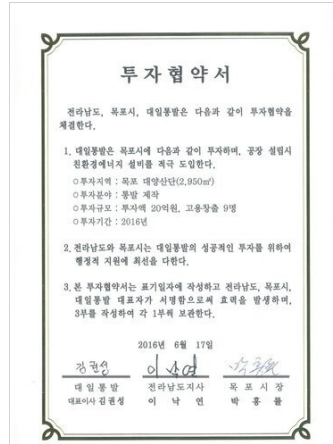 투자협약서
전라남도, 목포시, 대일통발은 다음과 같이 투자협약을
체결한다.
1. 대일통발은 목포시에 다음과 같이 투자하며, 공장 설립시
친환경에너지 설비를 적극 도입한다.
○투자지역 : 목포 대양산단(2,950㎡)
○투자분야 : 통발 제작
○투자규모 : 투자액 20억원, 고용창출 9명
○투자기간 : 2016년
2. 전라남도와 목포시는 대일통발의 성공적인 투자를 위하여
행정적 지원에 최선을 다한다.
3. 본 투자협약서는 표기일자에 작성하고 전라남도, 목포시,
대일통발 대표자가 서명함으로써 효력을 발생하며,
3부를 작성하여 각 1부씩 보관한다.
2016년 6월 17일
김권성
대일통발 전라남도지사 목포시장
대표이사 김권성 이낙연 박홍률